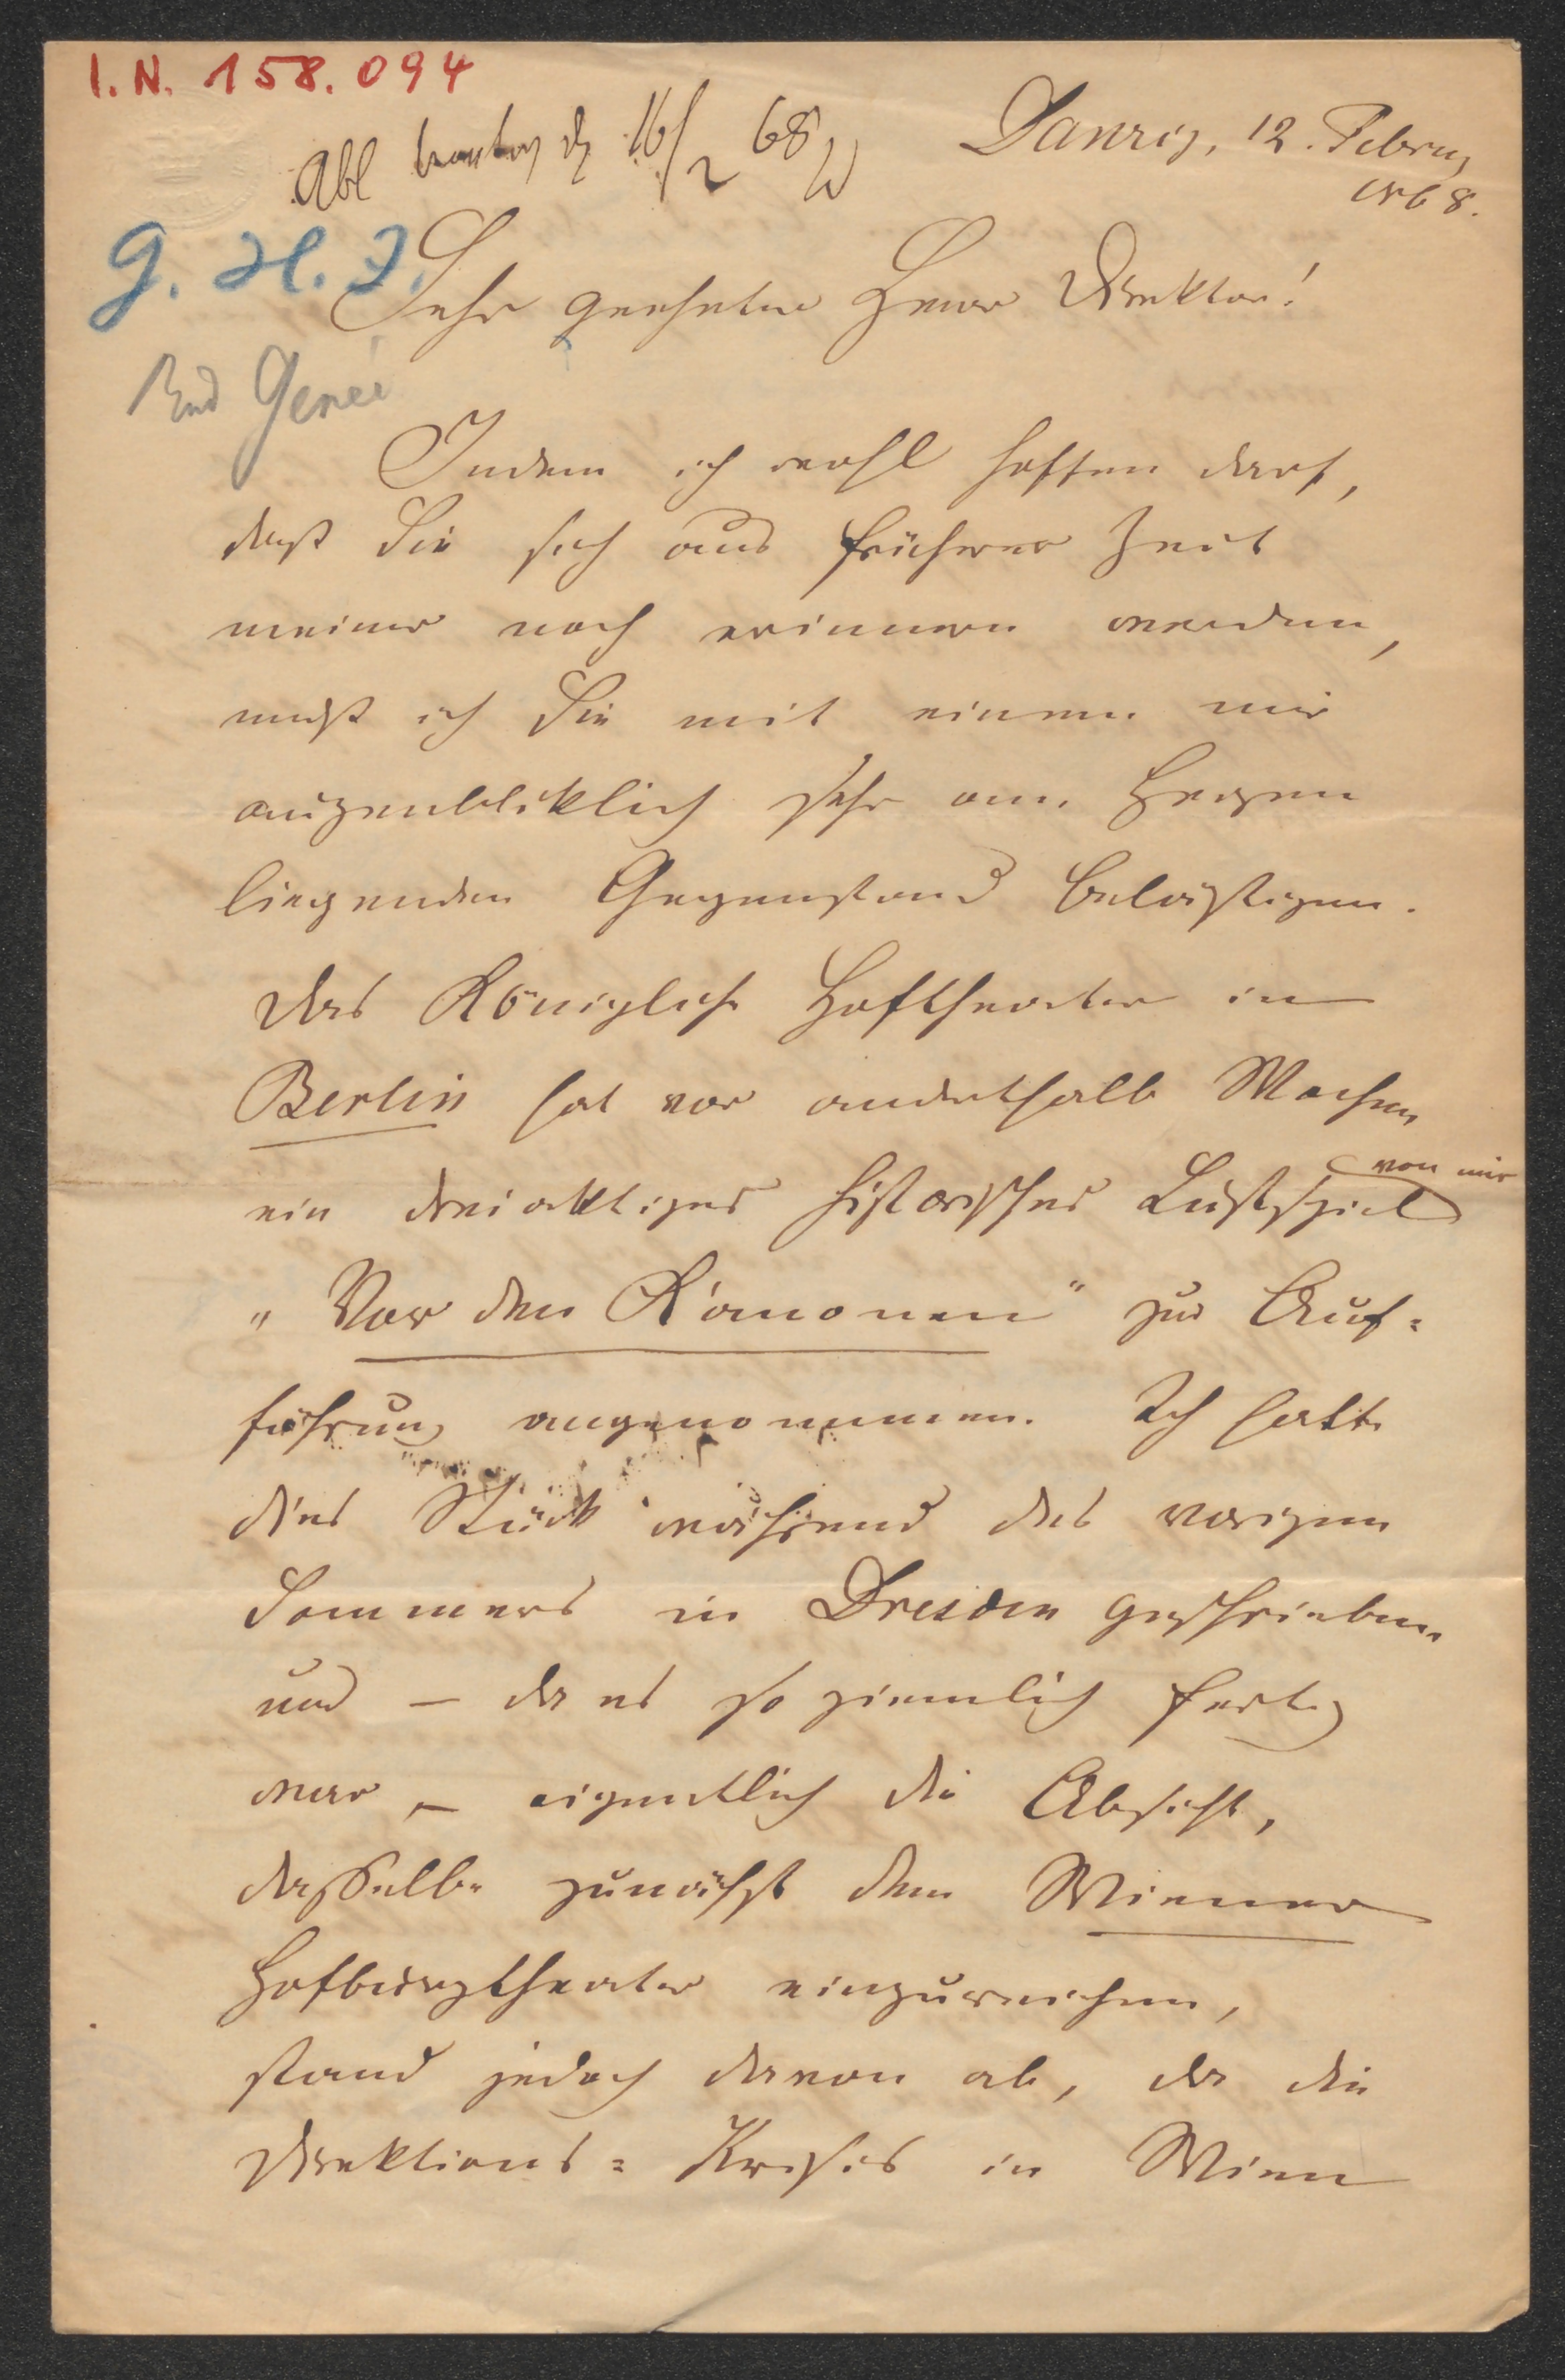 I. N. 158.094
Danzig, 12. Februar
1868.
Abl 16/2 68
G. H. I.
Sehr geehrter Herr Direktor!
Rud Genée
Indem ich wohl hoffen darf,
daß Sie sich aus früherer Zeit
meiner noch erinnern werden,
muß ich Sie mit einem mir
augenbliklich sehr am Herzen
liegenden Gegenstand belästigen.
Das Königliche Hoftheater in
Berlin hat vor anderthalb Wochen
ein dreiaktiges historisches Lustspiel von mir
„Vor den Kanonen" zur Auf-
führung angenommen. Ich hatte
dies Stück während des vorigen
Sommers in Dresden geschrieben
und – da es so ziemlich fertig
war, – eigentlich die Absicht,
dasselbe zunächst dem Wiener
Hofburgtheater einzureichen,
stand jedoch davon ab, da die
Direktions-Krisis in Wien